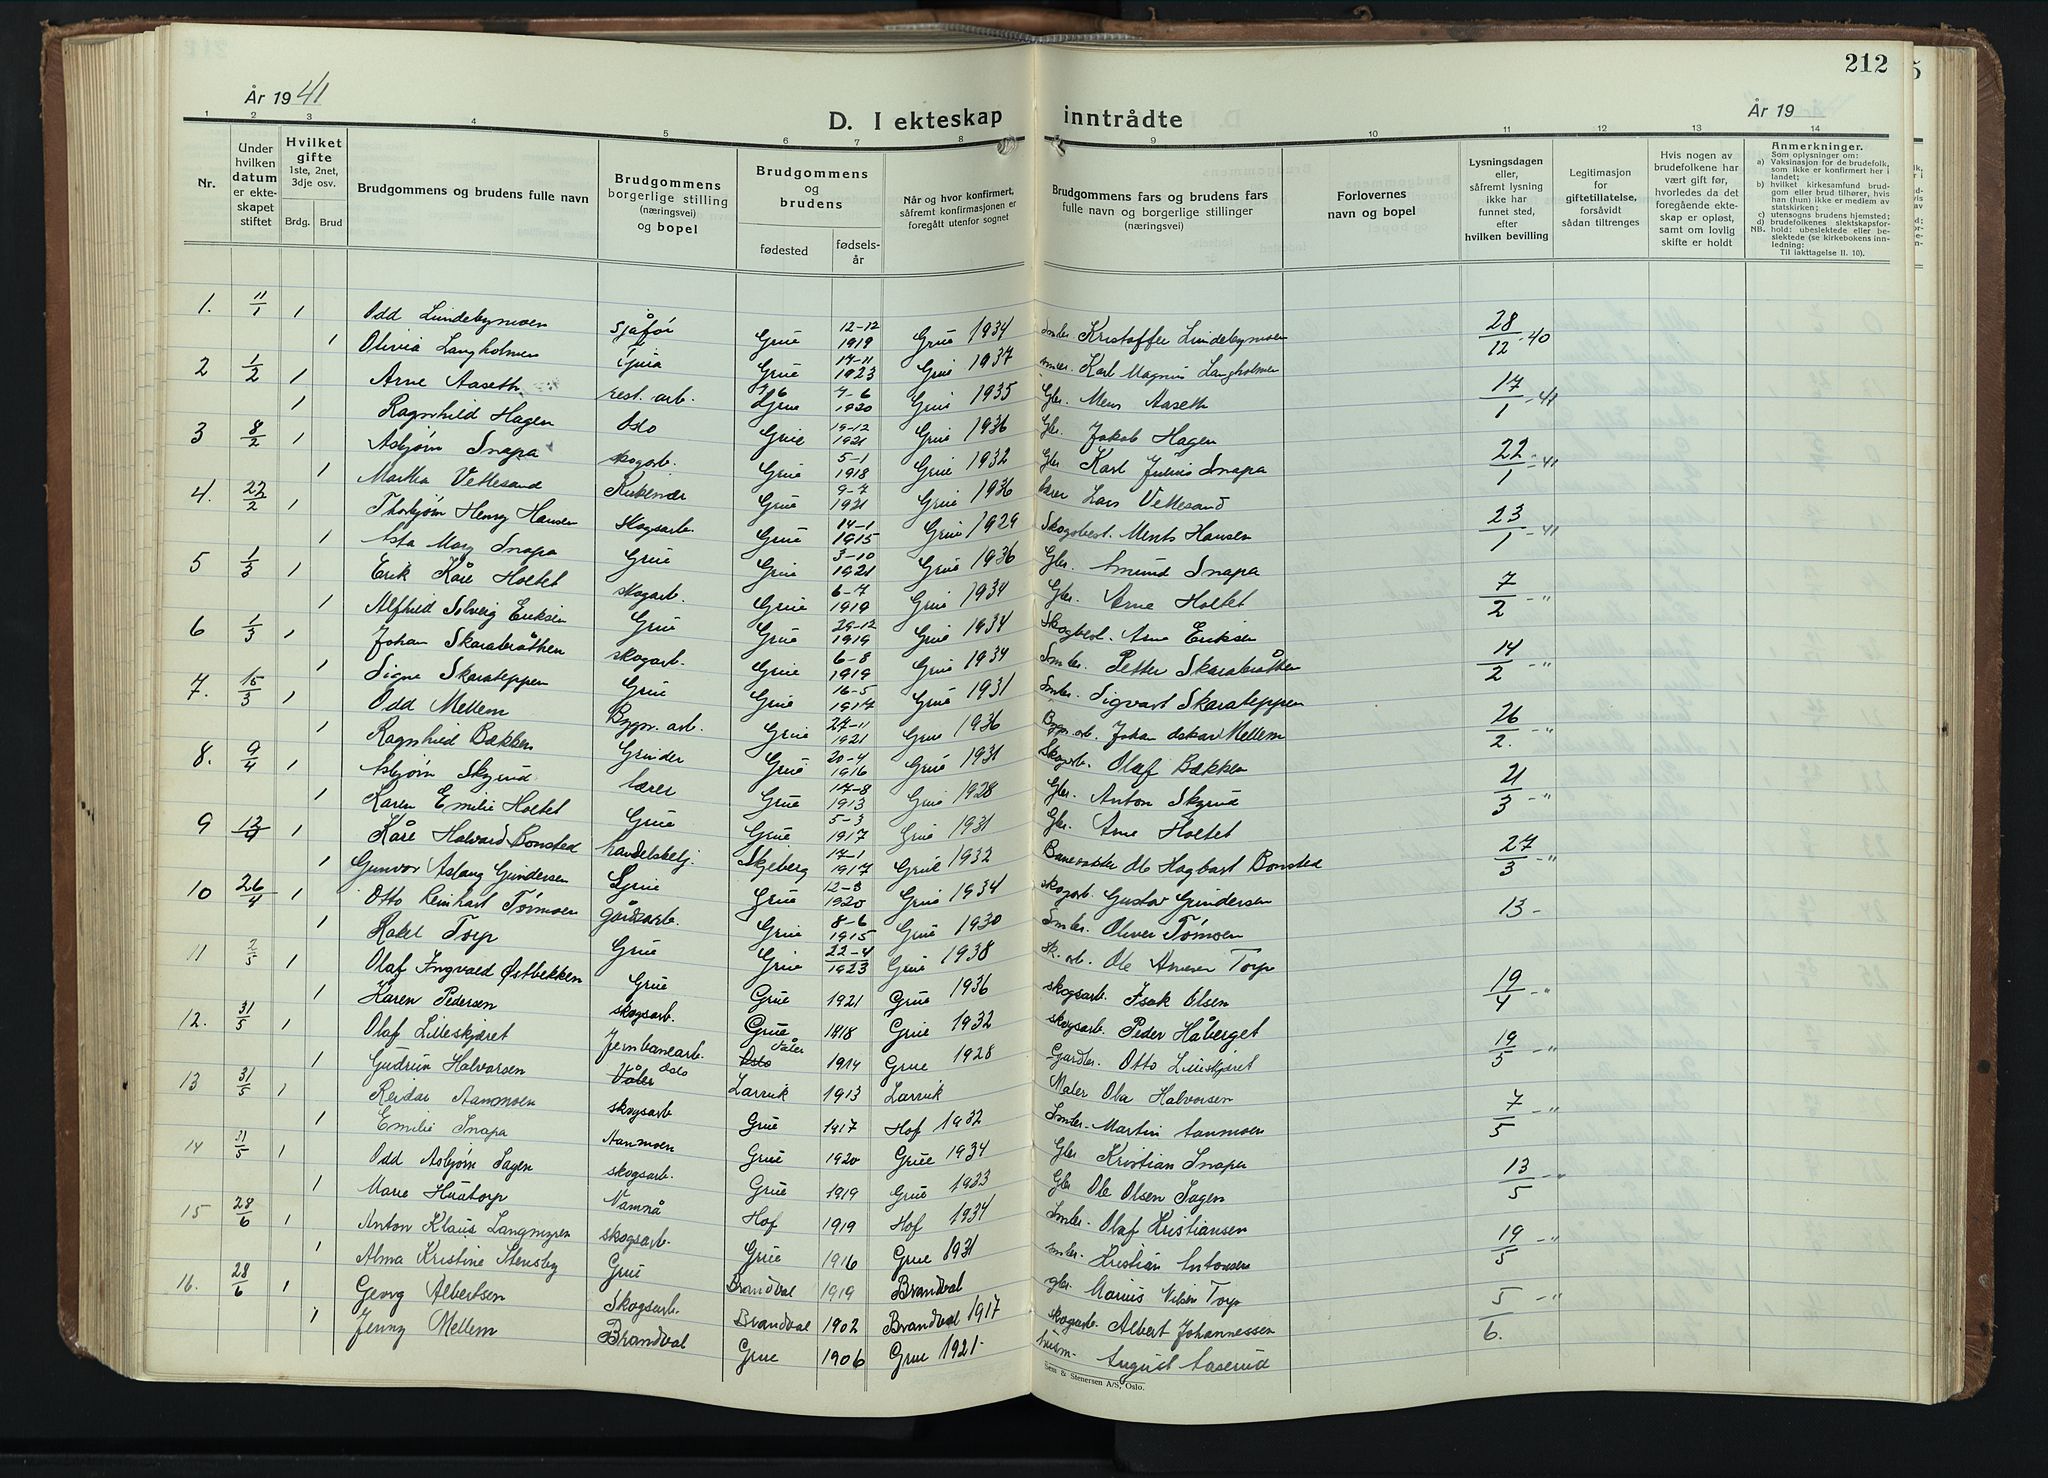 212
År 1941
År 19
D. I ekteskap inntrådte
1 2 3 4 5 6 7 8 9 10 11 12 13 14
Nr.
Under hvilken datum er ekteskapet stiftet
Hvilket gifte 1ste, 2net, 3dje osv.
Brdg. Brud
Brudgommens og brudens fulle navn
Brudgommens borgerlige stilling (næringsvei) og bopel
Brudgommens og brudens
fødested
fødselsår
Når og hvor konfirmert, såfremt konfirmasjonen er foregått utenfor sognet
Brudgommens fars og brudens fars fulle navn og borgerlige stillinger (næringsvei)
Forlovernes navn og bopel
Lysningsdagen eller, såfremt lysning ikke har funnet sted, efter hvilken bevilling
Legitimasjon for giftetillatelse, forsåvidt sådan tiltrenges
Hvis nogen av brudefolkene har vært gift før, hvorledes da det foregående ekteskap er opløst, samt om lovlig skifte er holdt
Anmerkninger.
Som oplysninger om:
a) Vaksinasjon for de brudefolk, som ikke er konfirmert her i landet;
b) hvilket kirkesamfund brudgom eller brud tilhører, hvis han (hun) ikke er medlem av statskirken;
c) utensogns brudens hjemsted;
d) brudefolkenes slektskapsforhold: ubeslektede eller beslektede (se kirkebokens innledning:
NB. Til iakttagelse II. 10).
1. 11/1 1 Odd Lundebymoen sjåfør Grue 12-12 1919 Grue 1934 Smbr. Kristoffer Lundebymoen 28/12-40
1 Olivia Langholmen Grue 17-11 1923 Grue 1937 Karl Magnus Langholmen
2 1/2 1 Arne Aaseth rest. arb. Grue 7-6 1920 Grue 1935 Gbr. Mens Aaseth 17/1-41
1 Ragnhild Hagen Oslo Grue 19-12 1921 Grue 1936 Gbr. Jakob Hagen
3 8/2 1 Asbjørn Snapa skogarb. Grue 5-1 1918 Grue 1932 Gbr Karl Julius Snapa 22/1-41
1 Martha Vettesand Kirkenær Grue 9-7 1921 Grue 1936 Lars Vettesand
4. 22/2 1 Thorbjørn Henry Hansen skogsarb. Grue 14-1 1915 Grue 1929 Skogsbest. Ments Hansen 23/1-41
1 Asta Mary Snapa Grue Grue 3-10 1921 Grue 1936 Gbr. Amund Snapa
5 1/3 1 Erik Kåre Holtet skogarb. Grue 6-7 1919 Grue 1934 Gbr. Arne Holtet 7/2-"
1 Alfhild Solveig Eriksen Grue Grue 29-12 1919 Grue 1934 Skogbest. Arne Eriksen
6 1/3 1 Johan Skarabråthen skogarb. Grue 6-8 1919 Grue 1934 Smbr. Petter Skarabråthen 14/2-"
1 Signe Skarateppen Grue Grue 16-5 1917 Grue 1931 Smbr. Sigvart Skarateppen
7. 15/3 1 Odd Mellem Bygn. arb. Grue 27-11 1921 Grue 1936 Bygn. arb. Johan Oskar Mellem 26/2.-"
1 Ragnhild Bækken Grinder Grue 20-4 1916 Grue 1931 Skogarb. Olaf Bækken
8. 9/4 1 Asbjørn Skyrud lærer Grue 17-8 1913 Grue 1928 Gbr. Anton Skyrud 21/3-"
1 Karen Emilie Holtet Grue Grue 5-3 1917 Grue 1931 Gbr. Arne Holtet
9 12/4 1 Kåre Halvard Bonsted handelsbetj. Skjeberg 17-1 1917 Grue 1932 Banevokter Ole Hagbart Bonsted 27/3-"
1 Gunvor Aslaug Gundersen Grue Grue 12-3 1920 Grue 1934 skogarb. Gustav Gundersen
10 26/4 1 Otto Reinhart Tørmoen gårdsarb. Grue 8-6 1915 Grue 1930 Smbr. Oliver Tømoen 13-
1 Rakel Torp Grue Grue 22-4 1923 Grue 1938 sk. arb. Ole Torp
11 1 Olaf Ingvald Østbekken Grue Grue 1921 Grue 1936 skogsarb. Isak Olsen 19/4-"
1 Karen Pedersen skogsarb. Grue 1918 Grue 1932 skogsarb. Peder Håberget
12. 31/5 1 Olaf Lilleskjæret Jernbanearb. Oslo Våler 1914 Grue 1928 Gårdbr. Otto Lilleskjæret 19/5-"
1 Gudrun Halvorsen Våler Oslo Larvik 1913 Larvik Maler Ola Halvorsen
13 31/5 1 Reidar Aanmoen skogsarb Grue 1917 Hof 1932 Smbr. Martin Aanmoen 7/5-"
1 Emilie Snapa Aanmoen Grue 1920 Grue 1934 Gbr Kristian Snapa
14 31/5 1 Odd Asbjørn Sagen skogsarb. Grue 1919 Grue 1933 Gbr Ole Olsen Sagen 13/5-"
1 Marie Huatorp Namnå Hof 1919 Hof 1934 Smbr. Olaf Kristiansen
15 28/6 1 Anton Klaus Langmyren skogsarb. Grue 1916 Grue 1931 smbr. Kristian Antonsen 19/5-"
1 Alma Kristine Stensby Grue Brandval 1919 Brandval gbr. Marius Nilsen Torp
16. 28/6 1 Georg Albertsen Skogsarb. Brandval 1902 Brandval 1917 skogarb. Albert Johannessen 5/6.-"
1 Jenny Mellem Brandval Grue 1906 Grue 1921 August Aaserud
Sem & Stenersen A/S, Oslo.